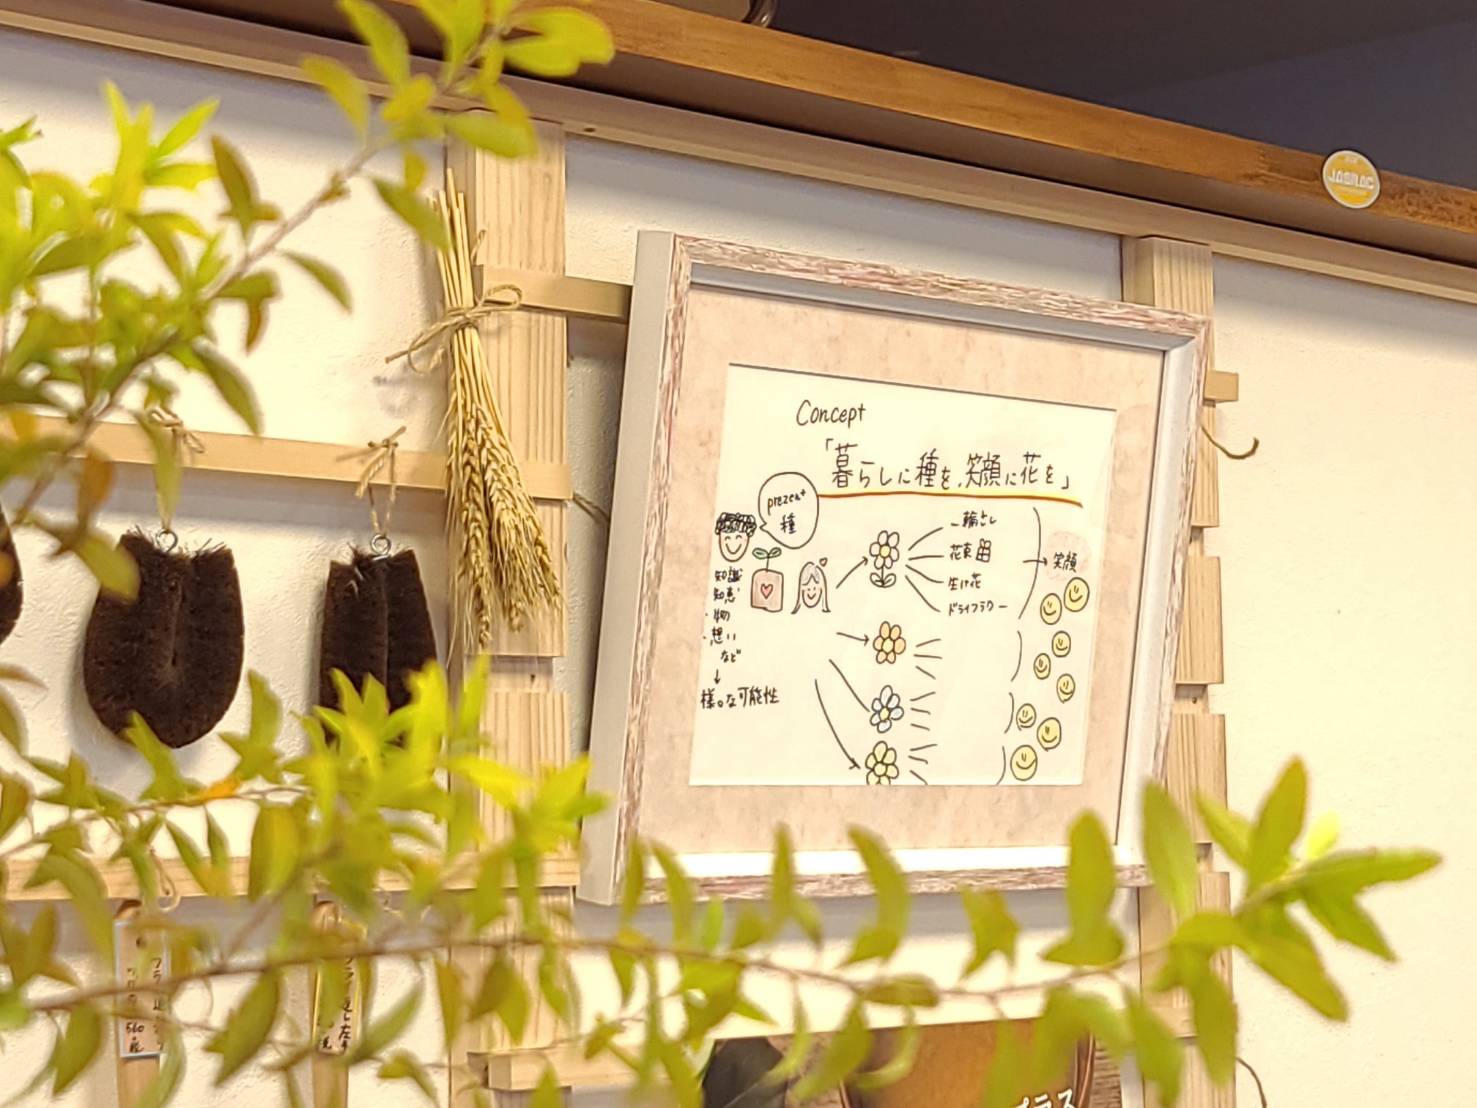 JASRAC
Concept
「暮らしに種を、笑顔に花を」
prezent
種
知識
知恵
・物
・想い
など
↓
様々な可能性
一輪さし
花束
生け花
ドライフラワー
笑顔
560
プラス